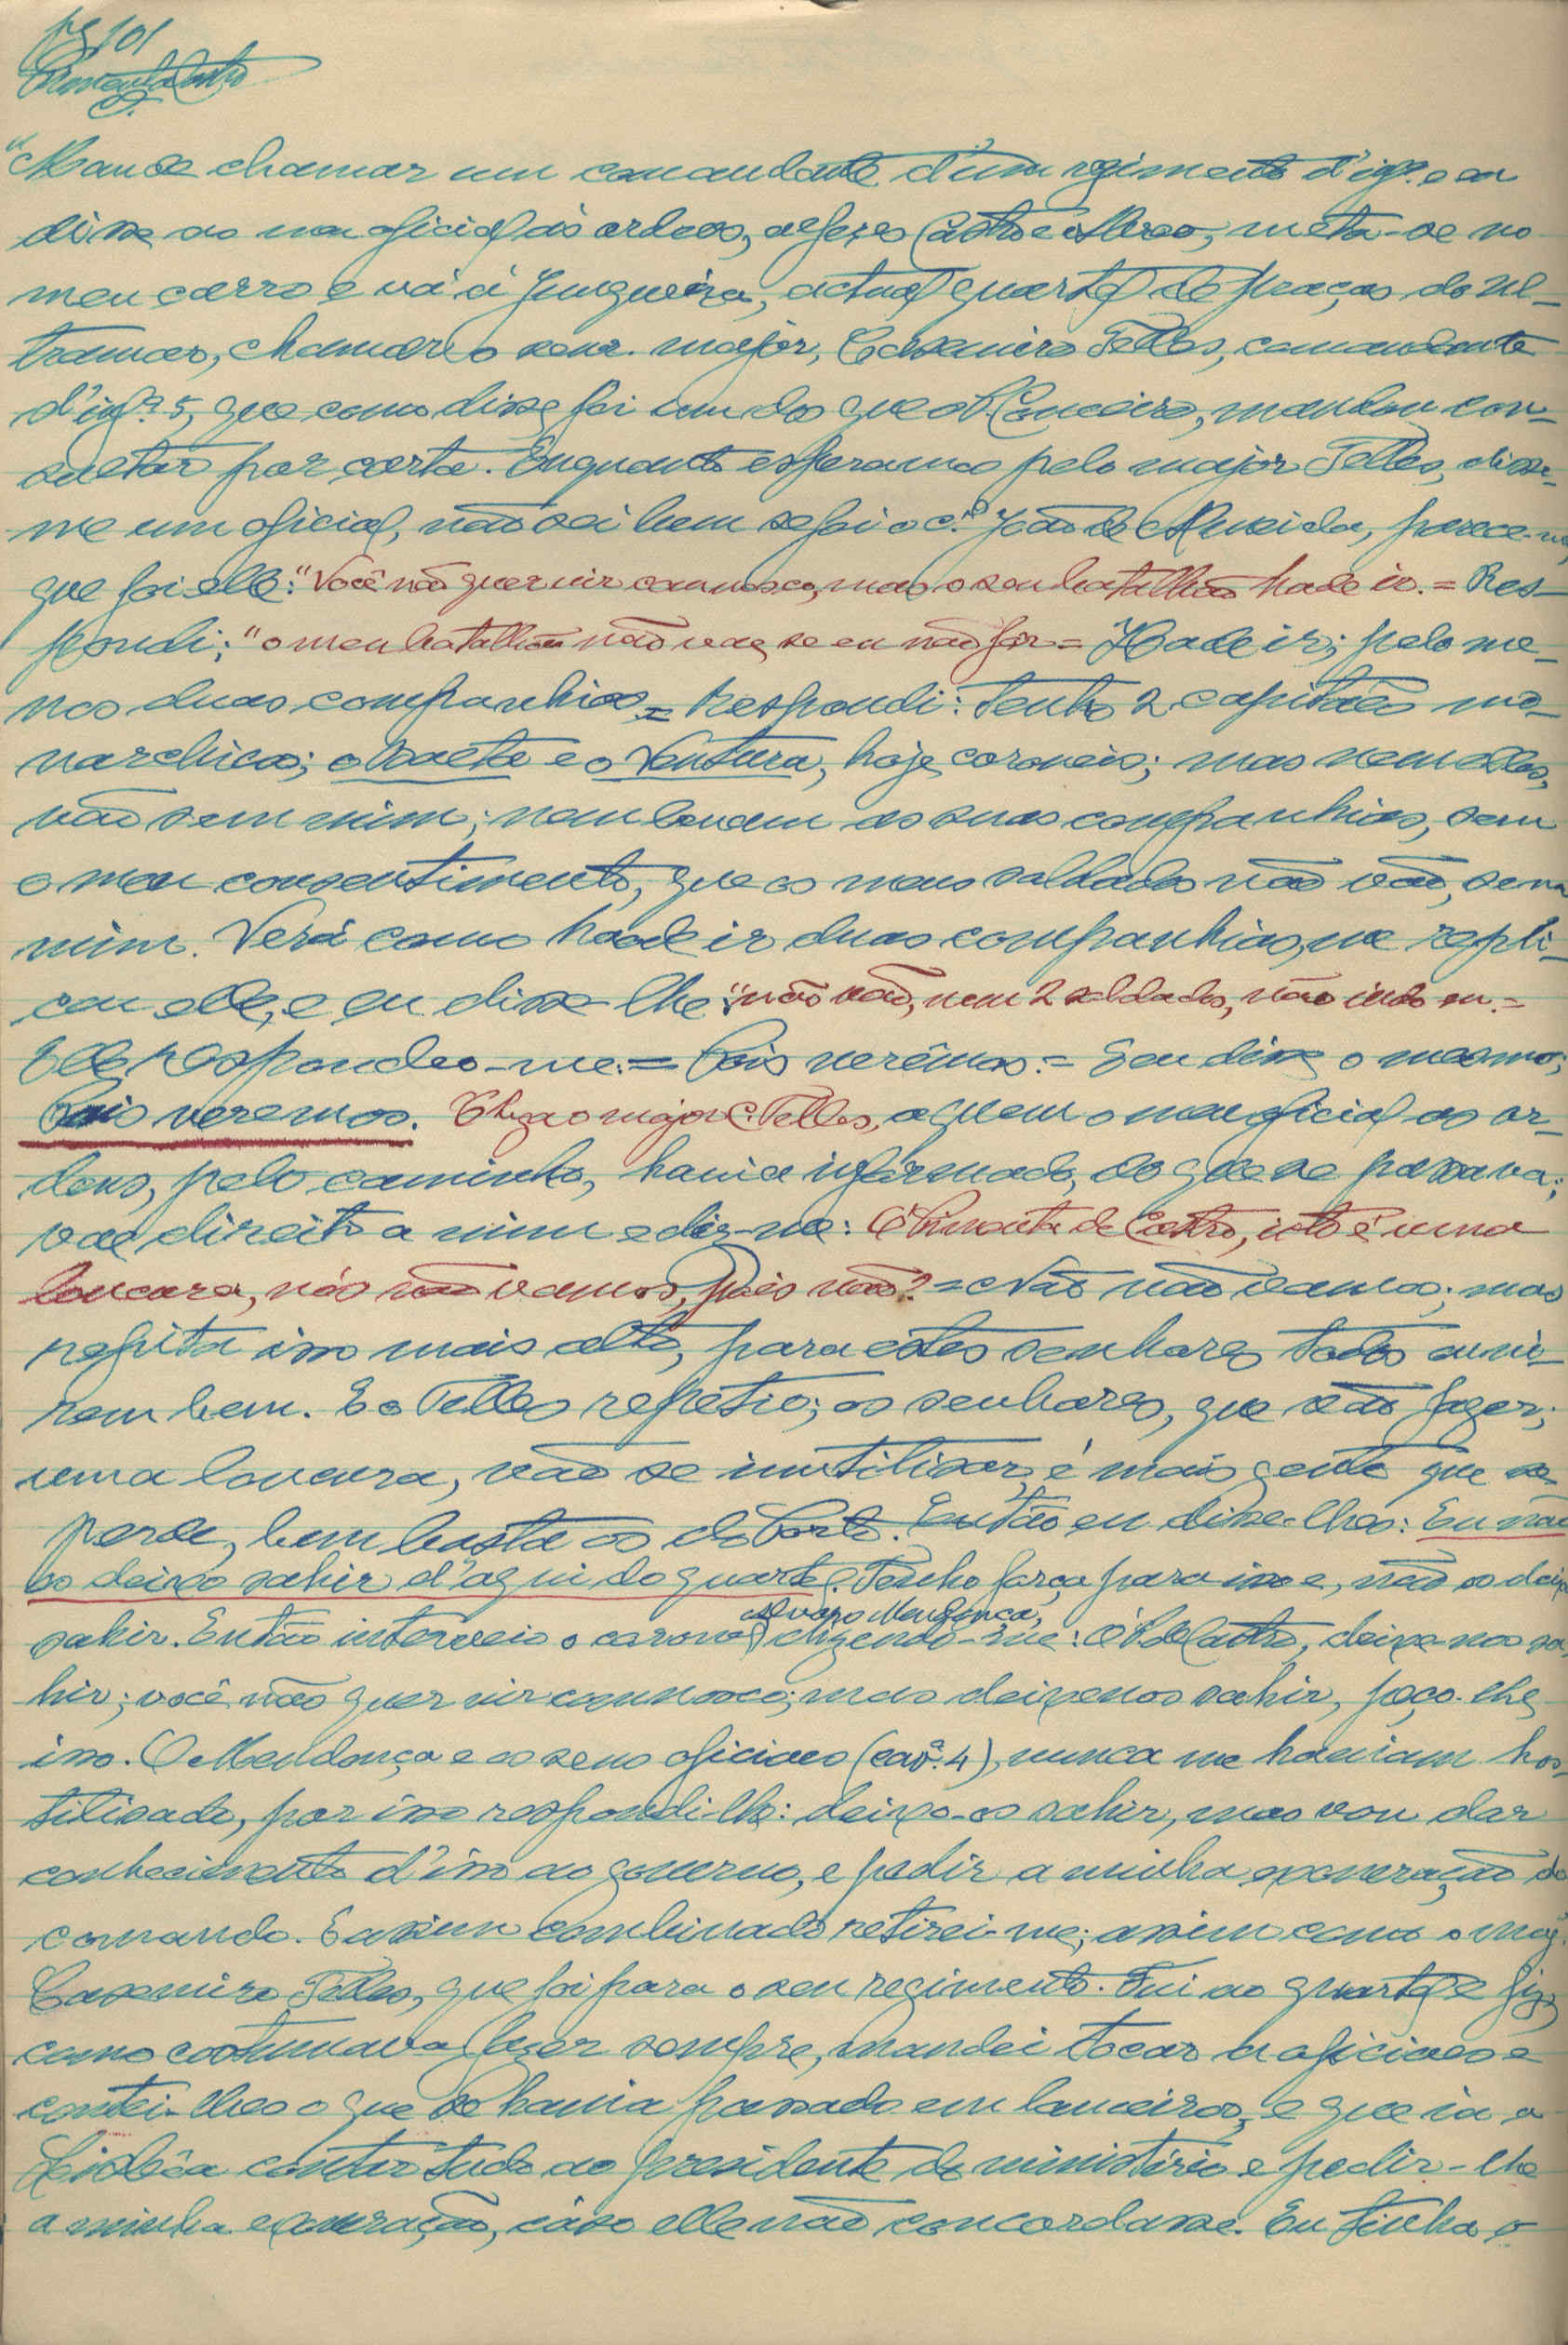 pg 101
Pimenta de Castro
"Mande chamar um comandante d'um regimento d'infª. e eu
disse ao meu oficial ás ordens, alferes Castro e Abreo, meta-se no
meu carro e vá á Junqueira, actual quartel de praças do Ul-
tramar, chamar o senr. major, Casemiro Telles, comandante
d'infª. 5, que como disse foi um do que o P. Couceiro, mandou con-
sultar por carta. Enquanto esperamos pelo major Telles, disse-
me um oficial, não sei bem se foi o c.el João de Almeida, parece-me
que foi elle: "Você não quer vir connosco, mas o seu batalhão hade ir. = Res-
pondi; "o meu batalhão não vae, se eu não fôr = Hade ir; pelo me-
nos duas companhias = Respondi: Tenho 2 capitães mo-
narchicos; o Baeta e o Ventura, hoje coroneis; mas nem elles,
vão sem mim; nem levam as suas companhias, sem
o meu consentimento, que os meus soldados não vão, sem
mim. Verá como hade ir duas companhias, me repli-
cou elle, e eu disse-lhe: "não vão, nem 2 soldados, não indo eu. =
Elle respondeo-me: = Pois verêmos. = E eu disse o mesmo;
Pois veremos. Chega o major C. Telles, a quem o meu oficial ás or-
dens, pelo caminho, havia informado, do que se passava;
vae direito a mim e diz-me: Ó Pimenta de Castro, isto é uma
loucura, nós não vamos, pois não? = Não não vamos; mas
repita isso mais alto, para estes senhores todos ouvi-
rem bem. E o Telles repetio; os senhores, que vão fazer;
uma loucura, vão se inutilisar, é mais gente que se
perde, bem basta os do Porto. Então eu disse-lhes: Eu não
os deixo sahir d'aqui do quartel. Tenho força para isso e, não os deixo
sahir. Então interveio o coronel Alvaro Mendonça, dizendo-me: Ó P. de Castro, deixe-nos sa-
hir; você não quer vir connosco; mas deixenos sahir, peço-lhe
isso. O Mendonça e os seus oficiaes (cavª. 4), nunca me haviam hos-
tilisado, por isso respondi-lhe: deixo-os sahir, mas vou dar
conhecimento d'isso ao governo, e pedir a minha exoneração do
comando. E assim combinado retirei-me; assim como o maj.
Casemiro Telles, que foi para o seu regimento. Fui ao quartel e fiz,
como costumava fazer sempre, mandei tocar a oficiaes e
contei-lhes o que se havia passado em lanceiros, e que ia a
Lisbôa contar tudo ao presidente do ministério e pedir-lhe
a minha exoneração, cáso elle não concordasse. Eu tinha o